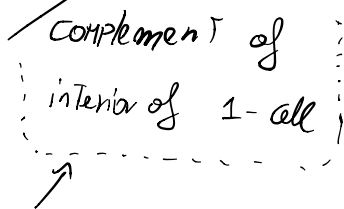 complement of
interior of 1-cell